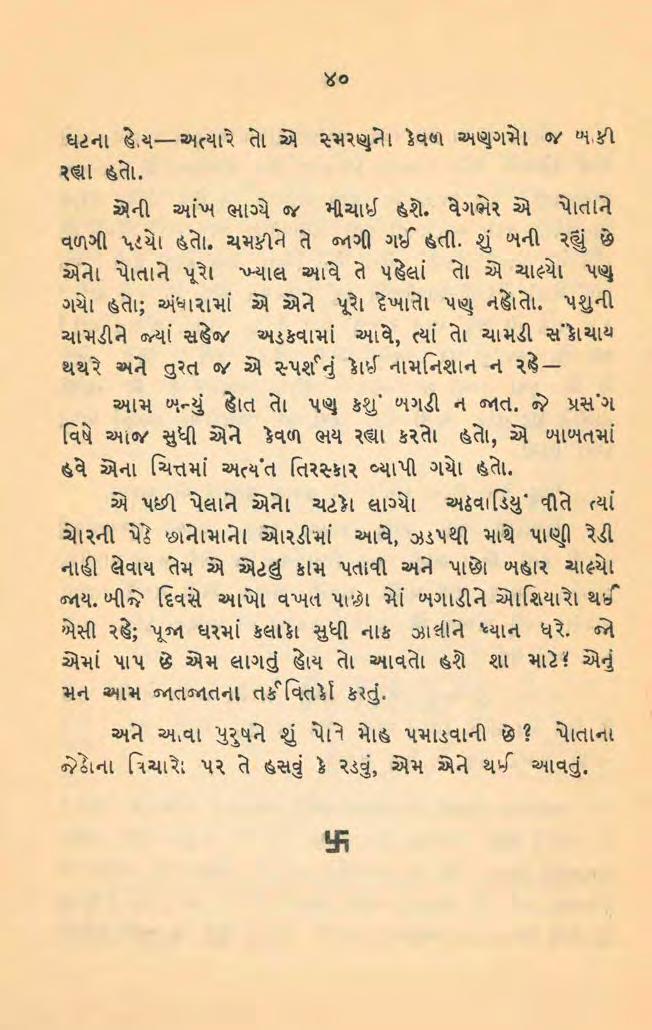 ૪૦
ઘટના હોય—અત્યારે તો એ સ્મરણુનો કેવળ અણગમો જ બાકી
રહ્યા હતો.
એની આંખ ભાગ્યે જ મીચાઈ હશે. વેગભેર એ પોતાને
વળગી પડ્યો હતો. ચમકીને તે જાગી ગઈ હતી. શું બની રહ્યું છે
એનો પોતાને પૂરો ખ્યાલ આવે તે પહેલાં તો એ ચાલ્યો પણ
ગયો હતો; અંધારામાં એ એને પૂરો દેખાતો પણ નહોતો. પશુની
ચામડીને જ્યાં સહેજ અડકવામાં આવે, ત્યાં તો ચામડી સંકોચાય
થથરે અને તુરત જ એ સ્પર્શનું કોઈ નામનિશાન ન રહે—
આમ બન્યું હોત તો પણ કશું બગડી ન જાત. જે પ્રસંગ
વિષે આજ સુધી એને કેવળ ભય રહ્યા કરતો હતો, એ બાબતમાં
હવે એના ચિત્તમાં અત્યંત તિરસ્કાર વ્યાપી ગયો હતો.
એ પછી પેલાને એનો ચટકો લાગ્યો અઠવાડિયું વીતે ત્યાં
ચોરની પેઠે છાનોમાનો ઓરડીમાં આવે, ઝડપથી માથે પાણી રેડી
નાહી લેવાય તેમ એ એટલું કામ પતાવી અને પાછો બહાર ચાલ્યો
જાય. બીજે દિવસે આખો વખત પાછો મોં બગાડીને ઓશિયારો થઈ
બેસી રહે; પૂજા ઘરમાં કલાકો સુધી નાક ઝાલીને ધ્યાન ધરે. જો
એમાં પાપ છે એમ લાગતું હોય તો આવતો હશે શા માટે? એનું
મન આમ જાતજાતના તર્કવિતર્કો કરતું.
અને આવા પુરુષને શું પોતે મોહ પમાડવાની છે? પોતાના
જેઠોના વિચારો પર તે હસવું કે રડવું, એમ એને થઈ આવતું.
卐